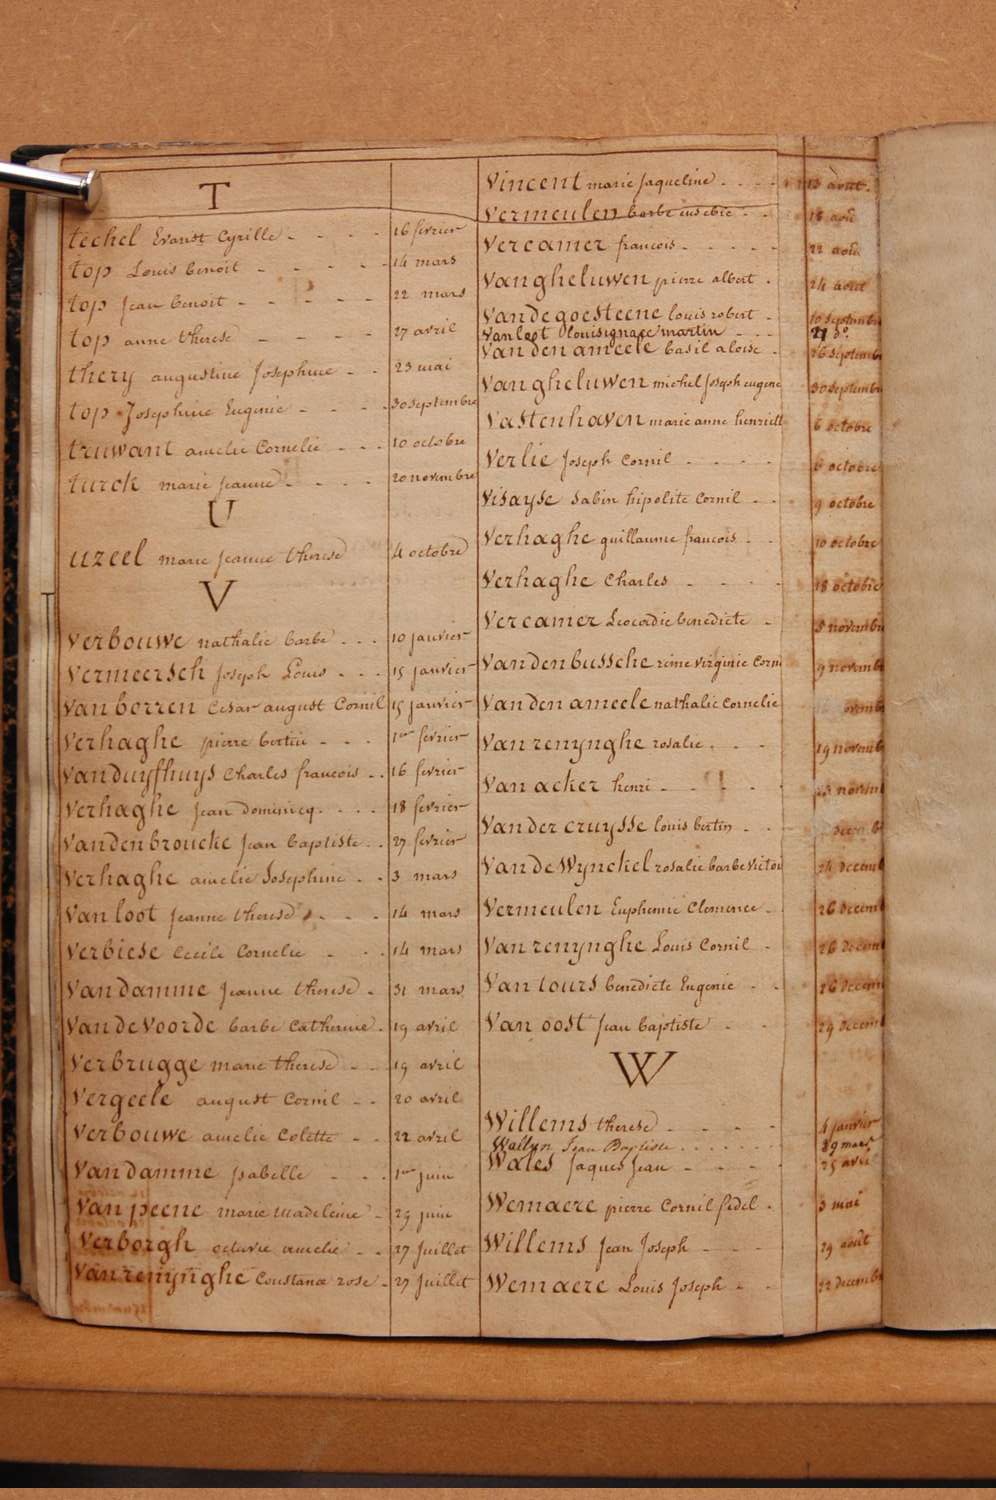 T
techel Evarist Cyrille - - - - 16 fevrier
top Louis benoit - - - - - 14 mars
top Jean benoit - - - - - 22 mars
top anne therese - - - 27 avril
thery augustine Josephine - - 23 mai
top Josephine Eugenie - - - - 30 septembre
truwant amelie Cornelie - - - 10 octobre
turck marie jeanne - - - - 20 novembre
U
uzeel marie jeanne therese 4 octobre
V
Verbouwe nathalie barbe - - - 10 janvier
Vermeersch Joseph Louis - - - 15 janvier
Van berren Cesar august Cornil 15 janvier
Verhaghe pierre bertin - - - 1er fevrier
Vanduyfhuys Charles francois - - 16 fevrier
Verhaghe Jean Dominicq - - - - 18 fevrier
Vandenbroucke Jean baptiste - - 27 fevrier
Verhaghe amelie Josephine - - 3 mars
Van loot Jeanne therese - - - 14 mars
Verbiese Cecile Cornelie - - - 14 mars
Van damme Jeanne therese - 31 mars
Van de Voorde barbe Catherine - 19 avril
Verbrugge marie therese - - 19 avril
Vergeele august Cornil - - 20 avril
Verbouwe amelie Colette - - 22 avril
Van damme Isabelle - - - 1er juin
Van peene marie madeleine - 29 juin
Verborgh octavie amelie - - 27 Juillet
Van renynghe Constance rose - 27 Juillet
Vincent marie Jaqueline - - - - 13 août
Vermeulen barbe eusebie - - 18 août
Vercamer francois - - - - - 22 août
Vangheluwen pierre albert - 24 août
Vande goesteene louis robert - 10 septembre
Van loot louis ignace martin - - - 21 do
Van den ameele basil aloise - 26 septemb
Vangheluwen michel Joseph eugene 30 septemb
Vastenhaven marie anne henriett 6 octobre
Verlie Joseph Cornil - - - - 6 octobre
Visayse Sabin hipolite Cornil - - 9 octobre
Verhaghe guillaume francois - - 10 octobre
Verhaghe Charles - - - - 18 octobre
Vercamer Leocadie benedicte - 5 novemb
Vandenbussche reine virginie Corn 9 novemb
Van den ameele nathalie Cornelie ovemb
Van renynghe rosalie - - - 19 novemb
Van acker henri - - - - - 23 novem
Van der cruysse louis bertin - - decemb
Van de Wynckel rosalie barbe victoi 24 decemb
Vermeulen Euphemie Clemence - 26 decem
Van renynghe Louis Cornil - 26 decem
Van tours benedicte Eugenie - - 26 decem
Van oost Jean baptiste - - 29 decem
W
Willems therese - - - - - 4 janvier
Wallyn Jean Baptiste - - - - - - 29 mars
Wales Jaques Jean - - - - 25 avril
Wemaere pierre Cornil fidel - 3 mai
Willems Jean Joseph - - - 29 août
Wemaere Louis Joseph - - 22 decemb